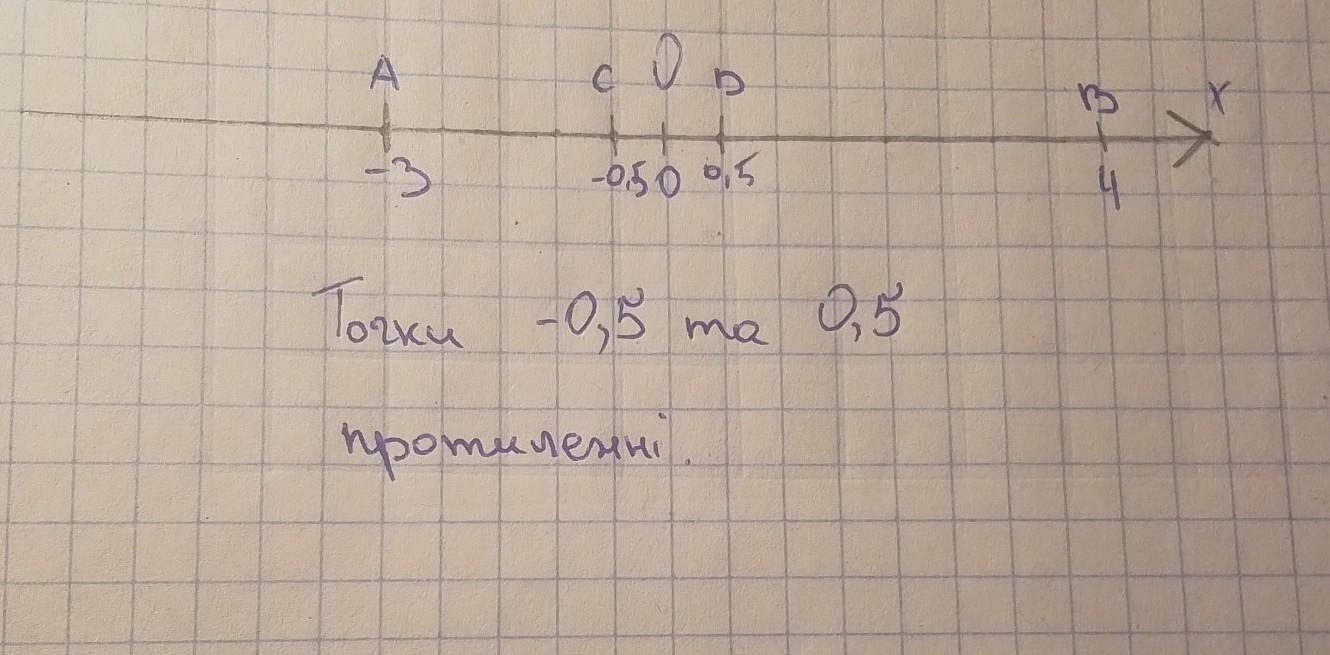 A C O D B X
-3 -0,5 0 0,5 4
Точки -0,5 та 0,5
протилежні.